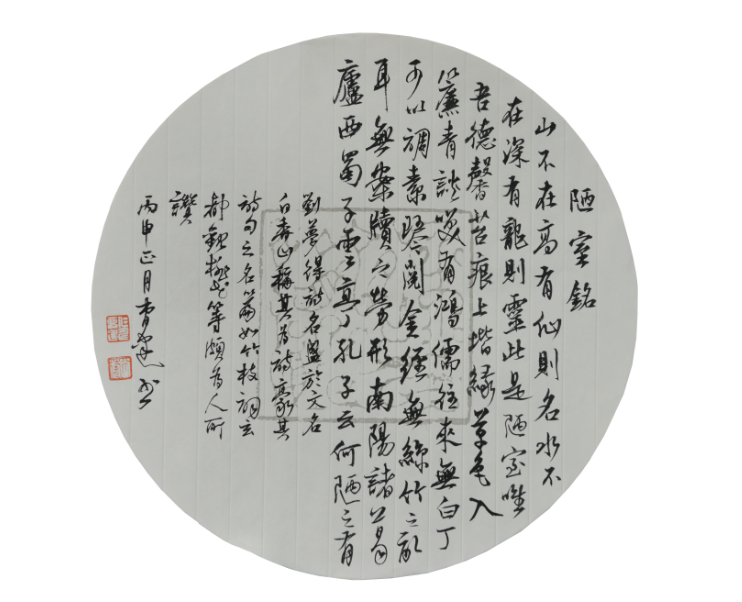 陋室銘
山不在高有仙則名水不
在深有龍則靈此是陋室唯
吾德馨苔痕上堦緑草色入
簾青談笑有鴻儒往來無白丁
可以調素琴閱金經無絲竹之亂
耳無案牘之勞形南陽諸葛
廬西蜀子雲亭孔子云何陋之有
劉夢得詩名盛於文名
白香山稱其為詩豪其
詩句之名篇如竹枝詞玄
都觀桃花等頗為人所
讚
丙申正月